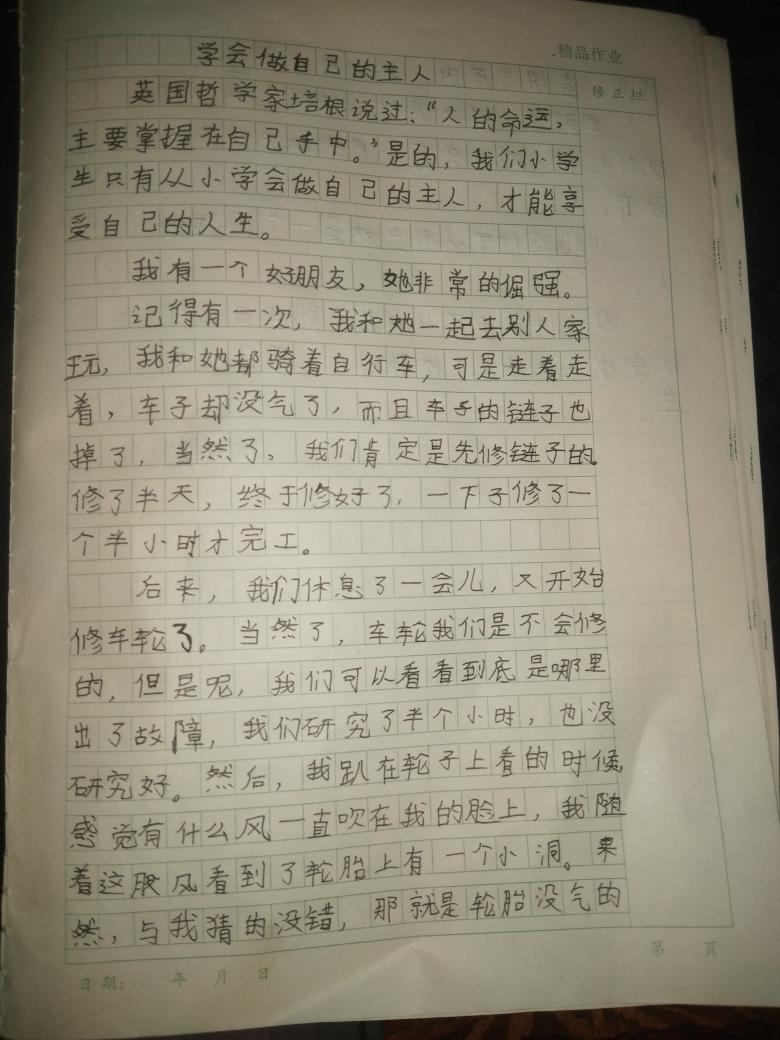 精品作业
修正栏
学会做自己的主人
英国哲学家培根说过:“人的命运,
主要掌握在自己手中。”是的,我们小学
生只有从小学会做自己的主人,才能享
受自己的人生。
我有一个好朋友,她非常的倔强。
记得有一次,我和她一起去别人家
玩,我和她都骑着自行车,可是走着走
着,车子却没气了,而且车子的链子也
掉了,当然了。我们肯定是先修链子的。
修了半天,终于修好了,一下子修了一
个半小时才完工。
后来,我们休息了一会儿,又开始
修车轮了。当然了,车轮我们是不会修
的,但是呢,我们可以看看到底是哪里
出了故障,我们研究了半个小时,也没
研究好。然后,我趴在轮子上看的时候,
感觉有什么风一直吹在我的脸上,我随
着这股风看到了轮胎上有一个小洞。果
然,与我猜的没错,那就是轮胎没气的
第 页
日期: 年 月 日